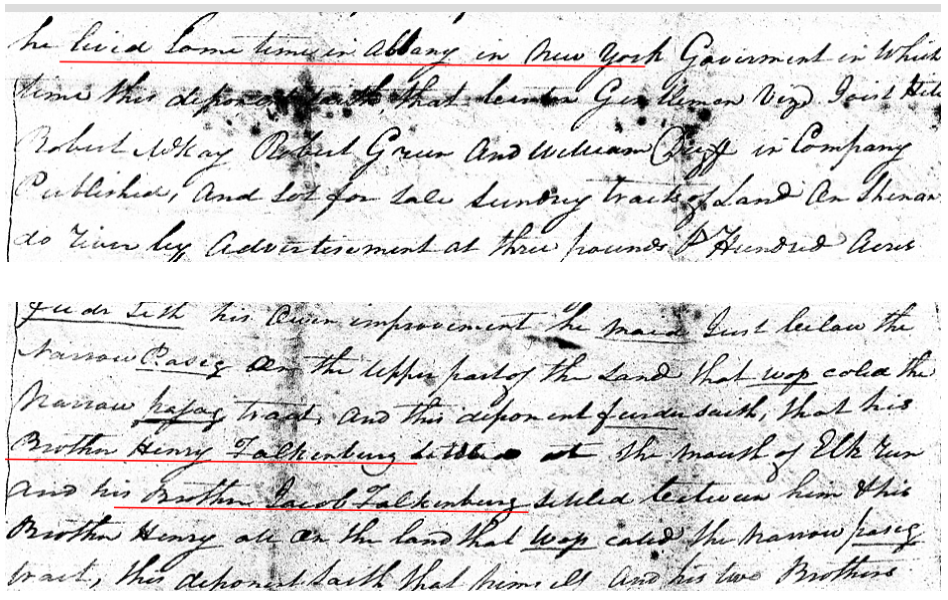 he lived Some time in Albany in New York Goverment in Which
time this deponent saith that Gentleman Vizd Joist Hite
Robert McKay Robert Green And William Duff in Company
Published, And Set for Sale Sundrey tracts of Land on Shenan
do River by Advertisement at three pounds P Hundred Acres
furdr Seth his Own improvement he maid Just below the
Narrow Paseg on the Upper part of the Land that wos caled the
Narrow pasag tract, and this deponent furder saith, that his
Brother Henry Falkenburg settled at the mouth of Elk Run
And his Brother Jacob Falkenburg settled between him & his
Brother Henry all on the land that wos caled the Narrow paseg
tract, this deponent Saith that himself And his two Brothers